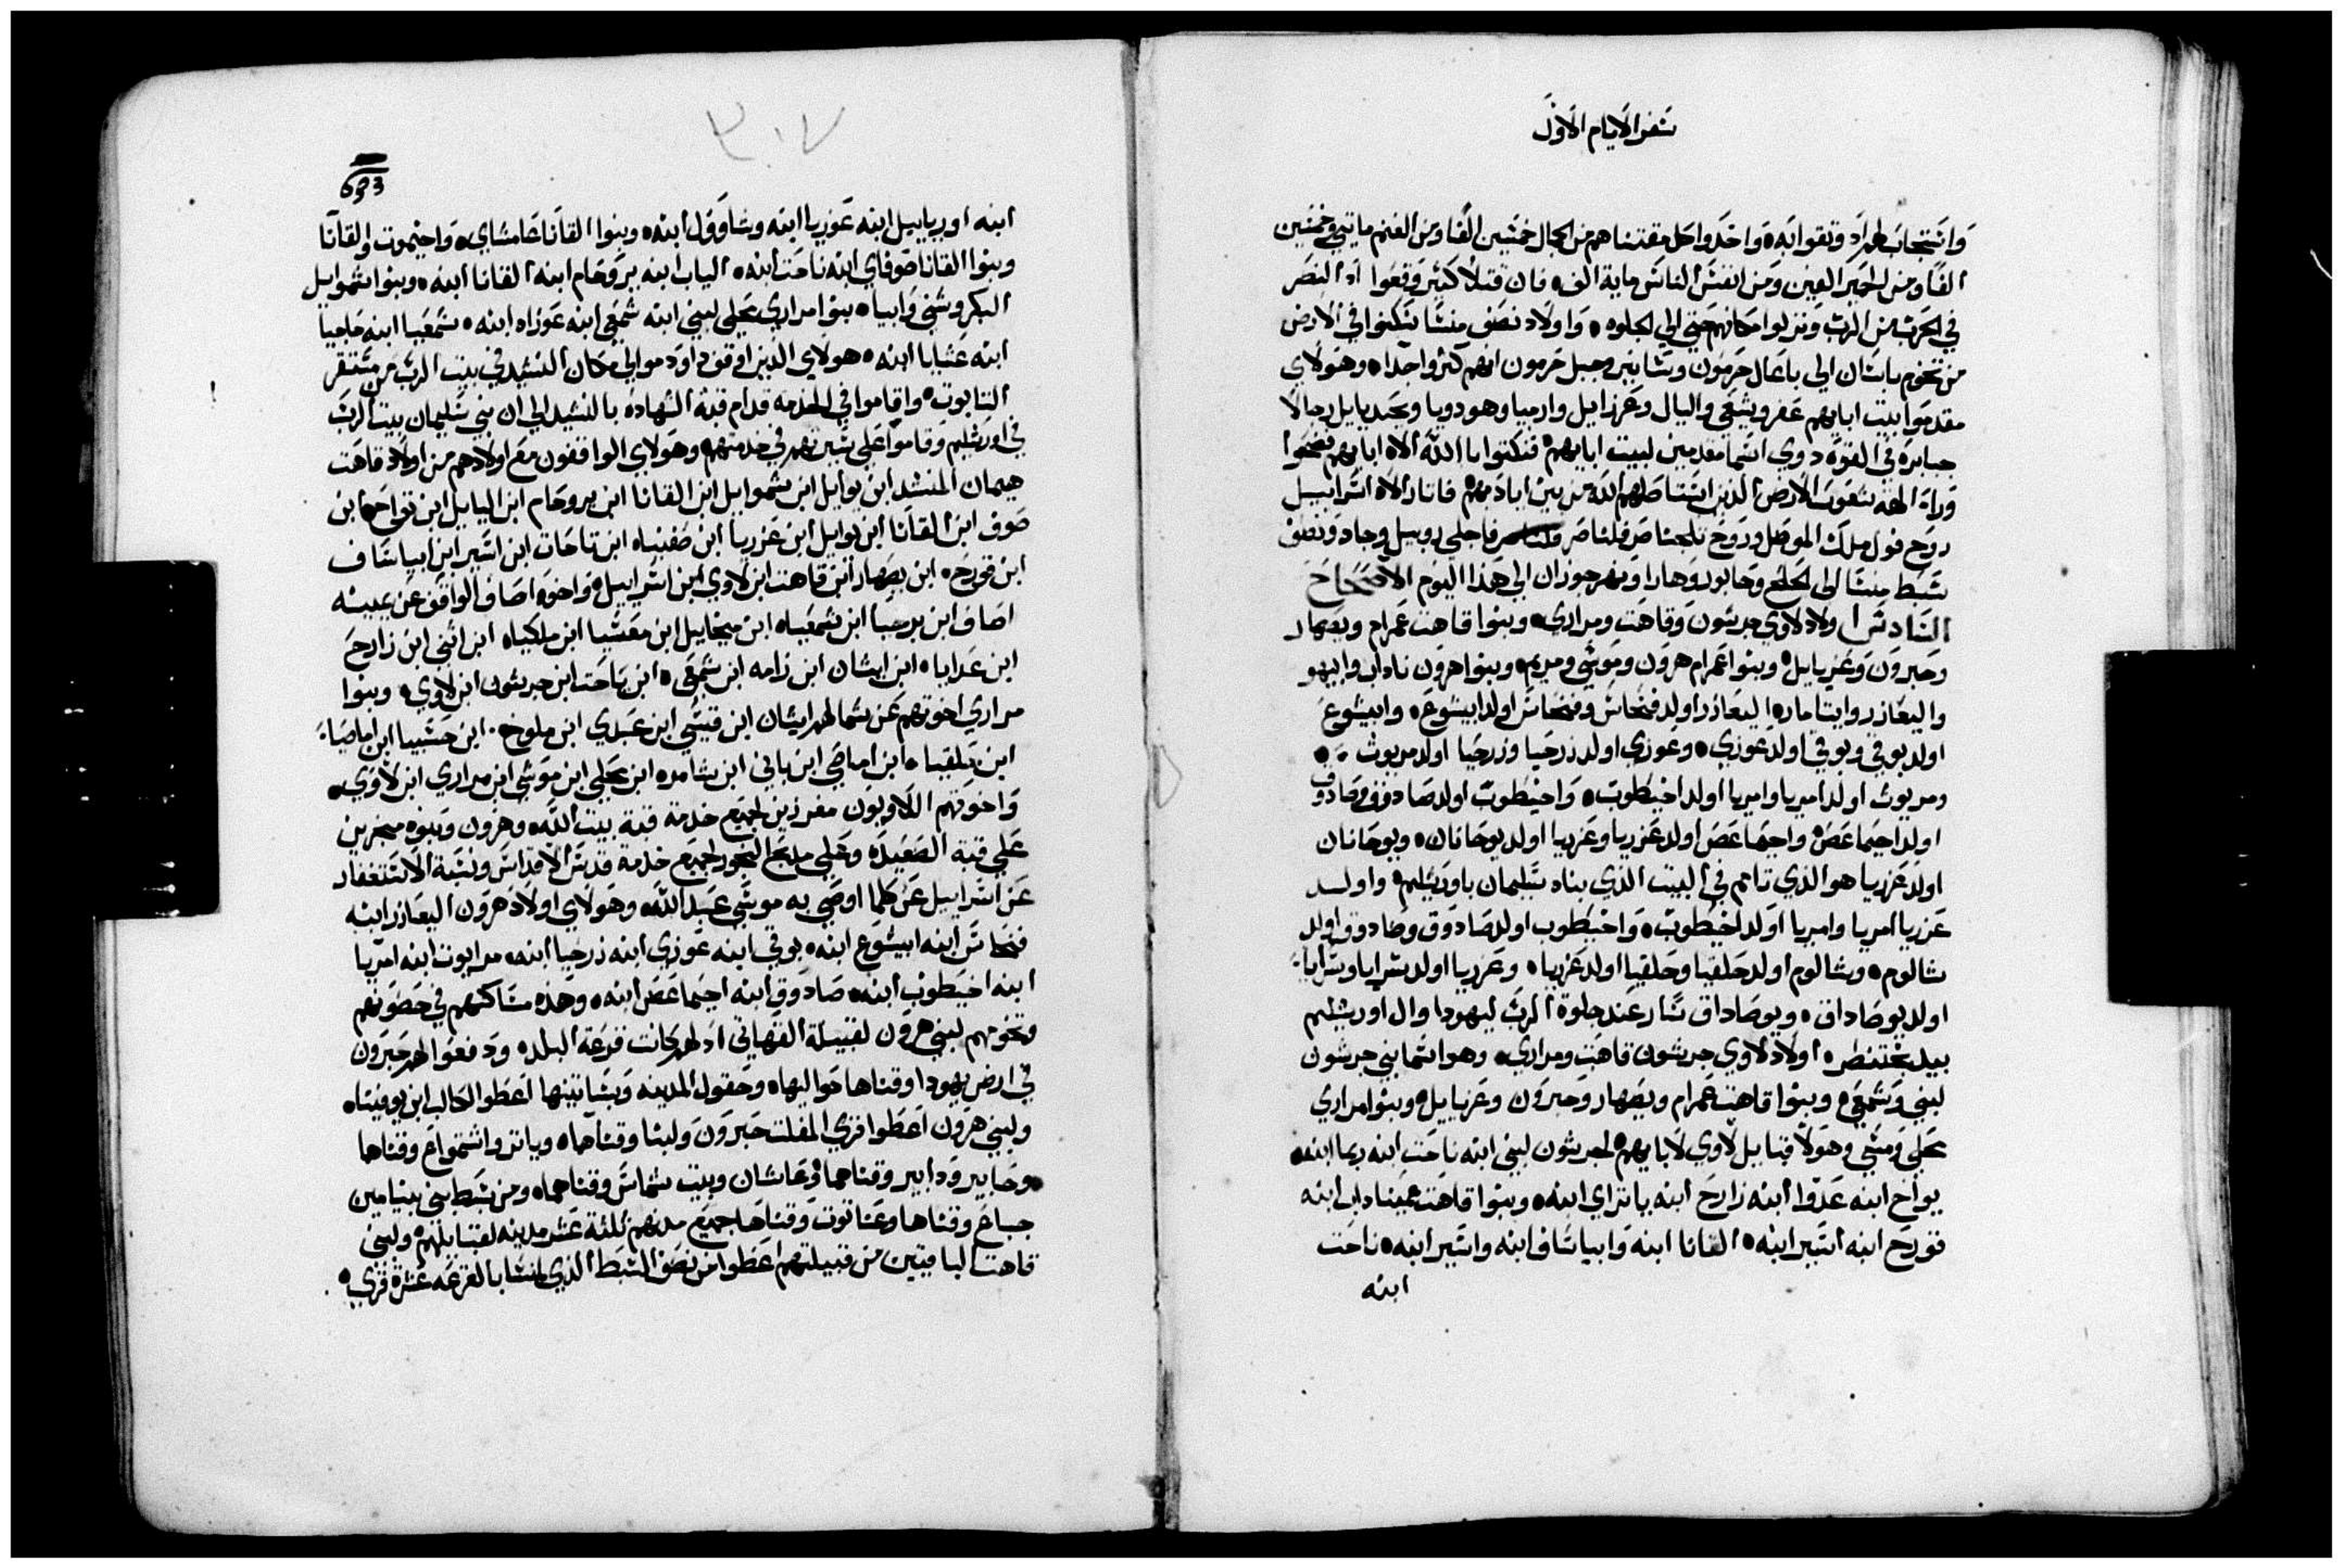 سفر الايام الاول
وانتجاب لهم اد وثقوا به واخدوا حل مقتناهم من الجمال خمسين الفا ومن الغنم مايتي وخمسين
الفا ومن الحمير الفين ومن انفس الناس ماية الف فان قتلا كثير وقعوا اد النصر
في الحرب من الرب ونزلوا مكانهم حتي الي الجلوه واولاد نصف منشا سكنوا في الارض
من تخوم باسان الي باعال حرمون وسانير وجبل حرمون انهم كثروا جدا وهولاي
مقدموا بيت ابايهم عفر ويشعي واليال وعزرايل وارميا وهودويا ويحديايل رجالا
جبابرة في القوة دوي اسما مقدمين لبيت ابايهم فنكتوا باالله الاه ابايهم وضحوا
وراء الهة شعوب الارض الذين استاصلهم الله من بين اياديهم فاثار الاه اسراييل
روح فول ملك الموصل وروح تلجتناصر فلناصر فاجلي روبيل وجاد ونصف
سبط منشا الي لحلح وحابور وهارا ونهر جوزان الي هذا اليوم الاصحاح
السادس اولاد لاوي جرشون وقاهت ومراري وبنوا قاهت عمرام ويصهار
وحبرون وعزيايل وبنوا عمرام هرون وموسي ومريم وبنوا هرون ناداب وابيهو
واليعازر وايتامار اليعازر اولد فنحاس وفنحاس اولد ابيشوع وابيشوع
اولد بوقي وبوقي اولد عوزي وعوزي اولد زرحيا وزرحيا اولد مريوث
ومريوث اولد امريا وامريا اولد اخيطوب واخيطوب اولد صادوق وصادوق
اولد اخيماعص واخيماعص اولد عزريا وعزريا اولد يوحانان ويوحانان
اولد عزريا هو الذي تامم في البيت الذي بناه سليمان باورشليم واولد
عزريا امريا وامريا اولد اخيطوب واخيطوب اولد صادوق وصادوق اولد
شالوم وشالوم اولد حلقيا وحلقيا اولد عزريا وعزريا اولد سرايا وسرايا
اولد يوصاداق ويوصاداق سار عند جلوة الرب ليهودا وال اورشليم
بيد بختنصر اولاد لاوي جرشون قاهت ومراري وهو اسما بني جرشون
لبني وشمعي وبنوا قاهت عمرام ويصهار وحبرون وعزيايل وبنوا مراري
محلي وموشي وهولا قبايل لاوي لابايهم لجرشون لبني ابنه ناحت ابنه ربما ابنه
يواخ ابنه عدوا ابنه زارح ابنه ياتراي ابنه وبنوا قاهت عميناداب ابنه
قورح ابنه اسير ابنه القانا ابنه وابياساف ابنه واسير ابنه ناحت
ابنه
٣٠٧
ابنه اورياييل ابنه عوزيا ابنه وشاوول ابنه وبنوا القانا عامشاي واخيموت والقانا
وبنوا القانا صوفاي ابنه ناحت ابنه الياب ابنه يروحام ابنه القانا ابنه وبنوا شموايل
البكر وشني وابيا بنوا مراري محلي لبني ابنه شمعي ابنه عوزاه ابنه شمعيا ابنه حاجيا
ابنه عشايا ابنه هولاي الذين اوقف داود موالي مكان النشيد في بيت الرب من مستقر
التابوت واقاموا في الخدمه قدام قبة الشهاده بالنشيد الي ان بني سليمان بيت الرب
في اورشليم وقاموا علي سيرتهم في خدمتهم وهولاي الواقفون مع اولادهم من اولاد قاهت
هيمان المنشد ابن يوايل ابن شموايل ابن القانا ابن يروحام ابن الياييل ابن تواح ابن
صوف ابن القانا ابن يوايل ابن عزريا ابن صفنياه ابن تاحات ابن اسير ابن ابياساف
ابن قورح ابن يصهار ابن قاهت ابن لاوي ابن اسراييل واخوه اصاف الواقف عن يمينه
اصاف ابن برخيا ابن شمعياه ابن ميخاييل ابن معشيا ابن ملكياه ابن اثني ابن زارح
ابن عدايا ابن ايشان ابن زامه ابن شمعي ابن ياحت ابن جرشون ابن لاوي وبنوا
مراري اخوتهم عن شمالهم ايشان ابن قيشي ابن عبدي ابن ملوخ ابن حشبيا ابن اماصيا
ابن حلقيا ابن اماصي ابن باني ابن شامر ابن محلي ابن موشي ابن مراري ابن لاوي
واخوتهم اللاويون مفرزين لجميع خدمة قبة بيت الله وهرون وبنوه مبخرين
علي قبة الصعيده وعلي مذبح البخور لجميع خدمة قدس الاقداس ونسبة الاستغفار
عن اسراييل عن كلما اوصي به موسي عبد الله وهولاي اولاد هرون اليعازر ابنه
فنحاس ابنه ابيشوع ابنه بوقي ابنه عوزي ابنه زرحيا ابنه مرايوت ابنه امريا
ابنه اخيطوب ابنه صادوق ابنه اخيماعص ابنه وهذه مساكنهم في حصونهم
وتخومهم لبني هرون لقبيلة القهاتي اد لهم كانت قرعة البلد ودفعوا لهم حبرون
في ارض يهودا وقناها حواليها وحقول المدينه وبساتينها اعطوا لكالب ابن يوفيناه
ولبني هرون اعطوا قري المفلت حبرون ولبنا وقناها وياتر واشتمواع وقناها
وحابير ودابير وقناهما وعاشان وبيت شماس وقناهما ومن سبط بني بنيامين
جباع وقناها وعناتوت وقناها جميع مدنهم ثلثة عشر مدينه لقبايلهم ولبني
قاهت الباقيين من قبيلتهم اعطوا من نصف السبط الذي لمنشا بالقرعه عشرة قري